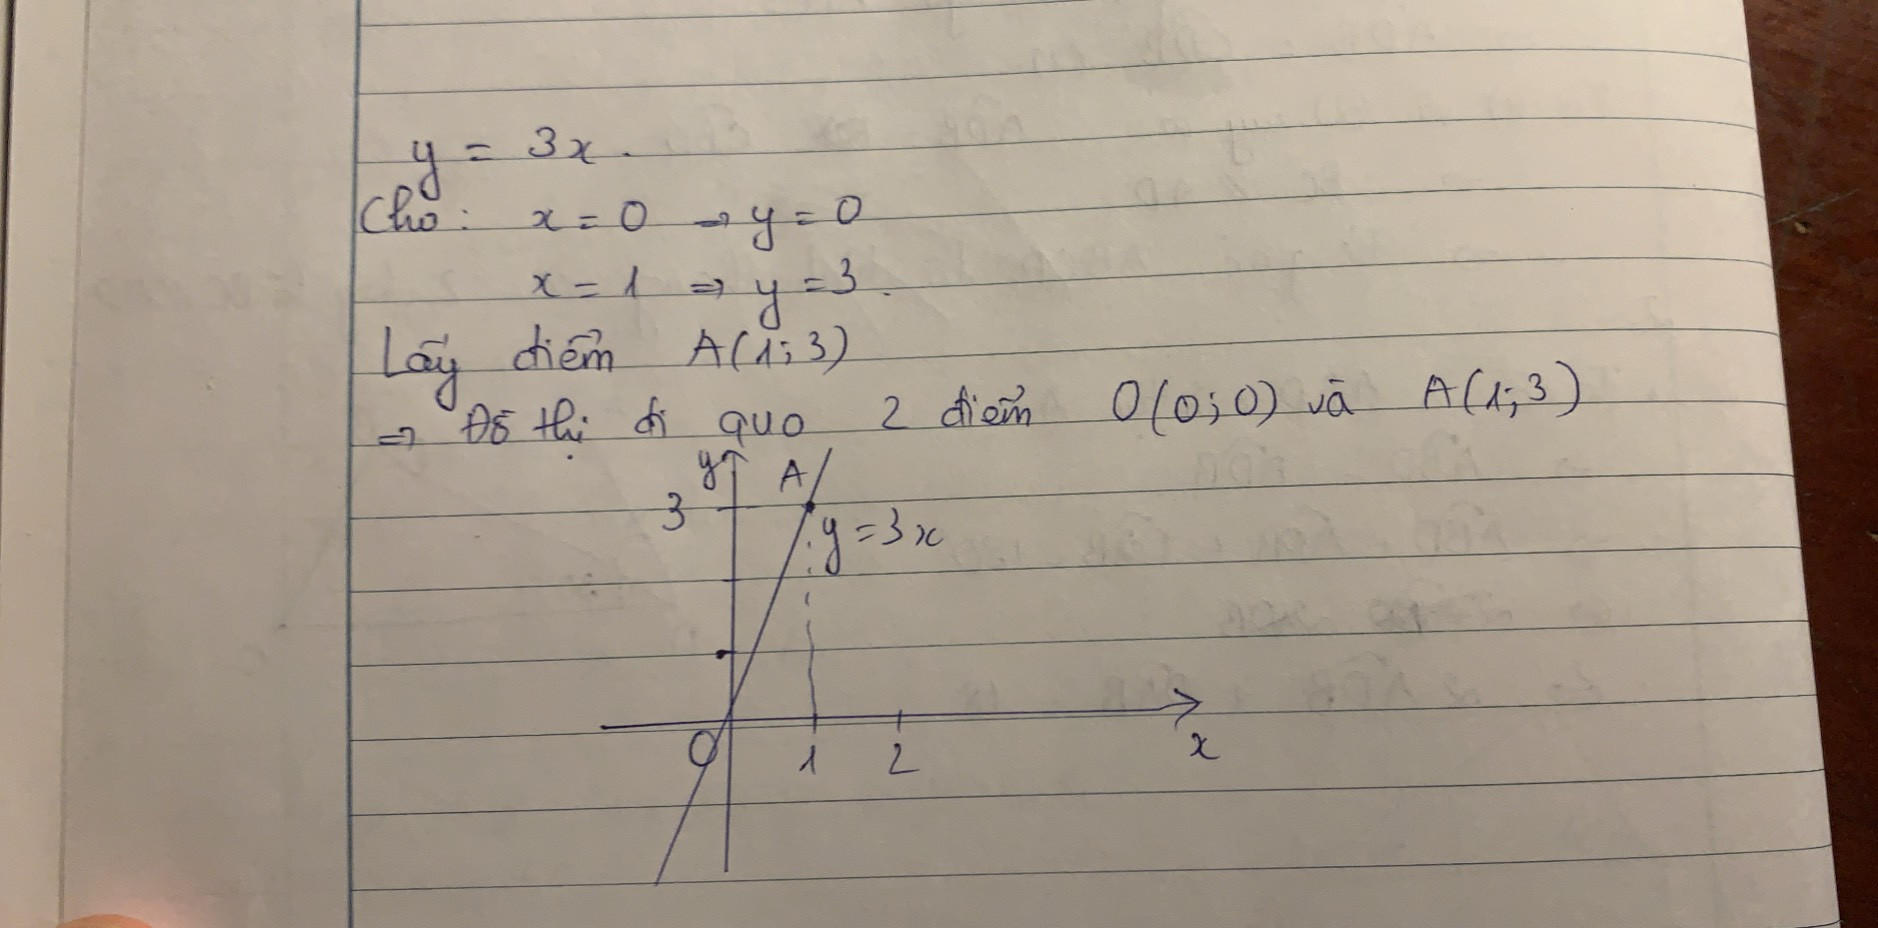 y = 3x.
Cho: x = 0 → y = 0
x = 1 ⇒ y = 3.
Lấy điểm A(1; 3)
⇒ Đồ thị đi quo 2 điểm O(0; 0) và A(1; 3)
y A
3
y = 3x
O 1 2 x